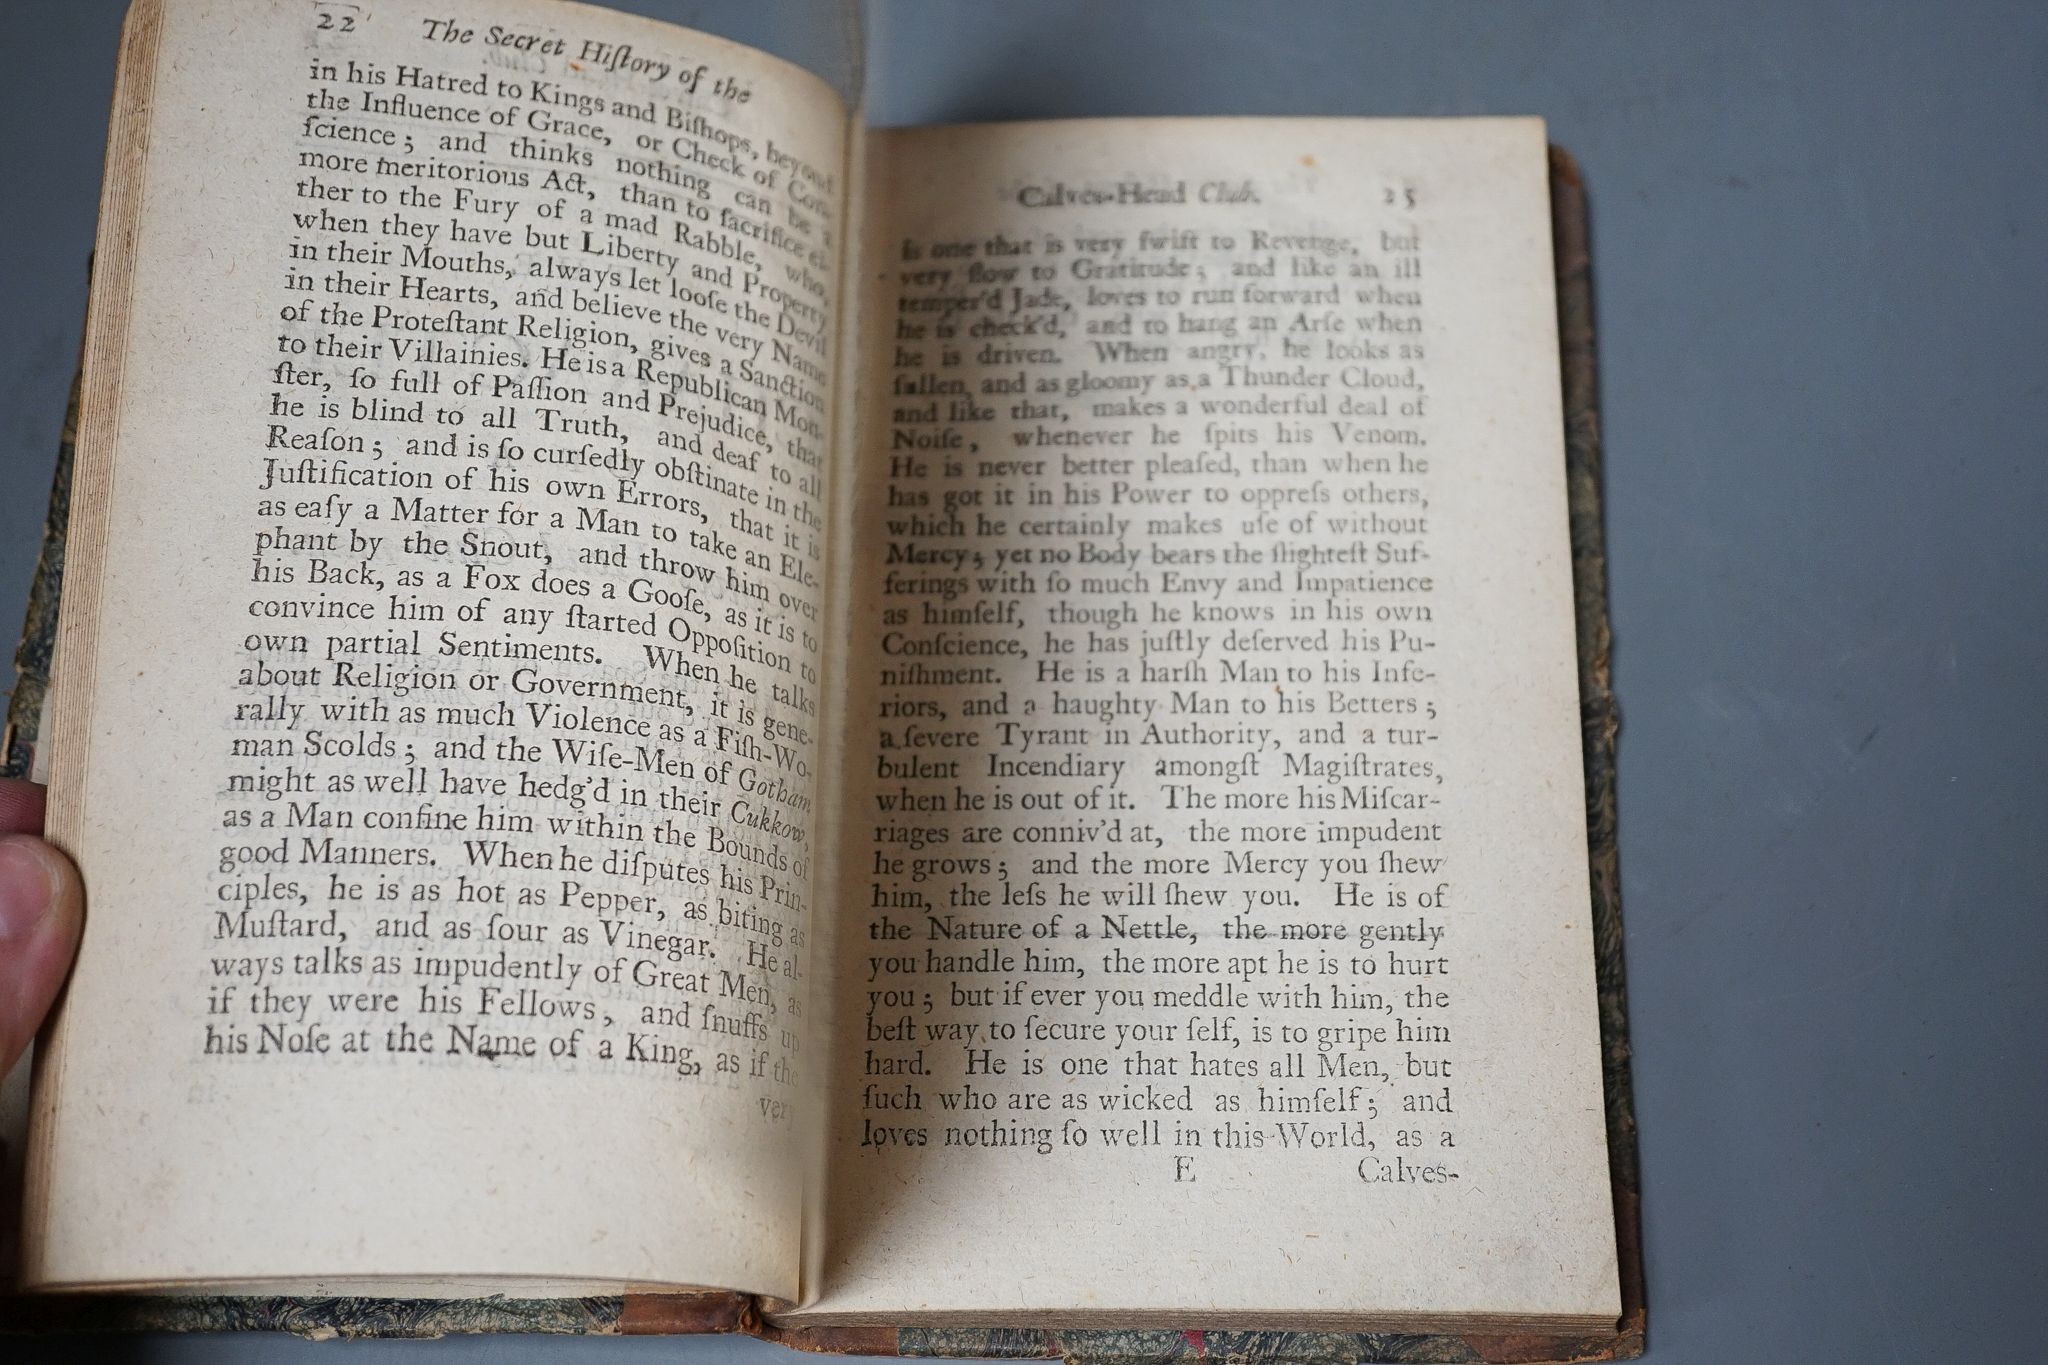 22 The Secret Hiſtory of the
in his Hatred to Kings and Biſhops, beyond
the Influence of Grace, or Check of Con-
ſcience; and thinks nothing can be a
more meritorious Act, than to ſacrifice ei-
ther to the Fury of a mad Rabble, who,
when they have but Liberty and Property
in their Mouths, always let looſe the Devil
in their Hearts, and believe the very Name
of the Proteſtant Religion, gives a Sanction
to their Villainies. He is a Republican Mon-
ſter, ſo full of Paſſion and Prejudice, that
he is blind to all Truth, and deaf to all
Reaſon; and is ſo curſedly obſtinate in the
Juſtification of his own Errors, that it is
as eaſy a Matter for a Man to take an Ele-
phant by the Snout, and throw him over
his Back, as a Fox does a Gooſe, as it is to
convince him of any ſtarted Oppoſition to
own partial Sentiments. When he talks
about Religion or Government, it is gene-
rally with as much Violence as a Fiſh-Wo-
man Scolds; and the Wiſe-Men of Gotham
might as well have hedg'd in their Cukkow,
as a Man confine him within the Bounds of
good Manners. When he diſputes his Prin-
ciples, he is as hot as Pepper, as biting as
Muſtard, and as ſour as Vinegar. He al-
ways talks as impudently of Great Men, as
if they were his Fellows, and ſnuffs up
his Noſe at the Name of a King, as if the
very
Calves-Head Club. 25
is one that is very ſwift to Revenge, but
very ſlow to Gratitude; and like an ill
temper'd Jade, loves to run forward when
he is check'd, and to hang an Arſe when
he is driven. When angry, he looks as
ſullen, and as gloomy as a Thunder Cloud,
and like that, makes a wonderful deal of
Noiſe, whenever he ſpits his Venom.
He is never better pleaſed, than when he
has got it in his Power to oppreſs others,
which he certainly makes uſe of without
Mercy; yet no Body bears the ſlighteſt Suf-
ferings with ſo much Envy and Impatience
as himſelf, though he knows in his own
Conſcience, he has juſtly deſerved his Pu-
niſhment. He is a harſh Man to his Infe-
riors, and a haughty Man to his Betters;
a ſevere Tyrant in Authority, and a tur-
bulent Incendiary amongſt Magiſtrates,
when he is out of it. The more his Miſcar-
riages are conniv'd at, the more impudent
he grows; and the more Mercy you ſhew
him, the leſs he will ſhew you. He is of
the Nature of a Nettle, the more gently
you handle him, the more apt he is to hurt
you; but if ever you meddle with him, the
beſt way to ſecure your ſelf, is to gripe him
hard. He is one that hates all Men, but
ſuch who are as wicked as himſelf; and
loves nothing ſo well in this World, as a
E Calves-